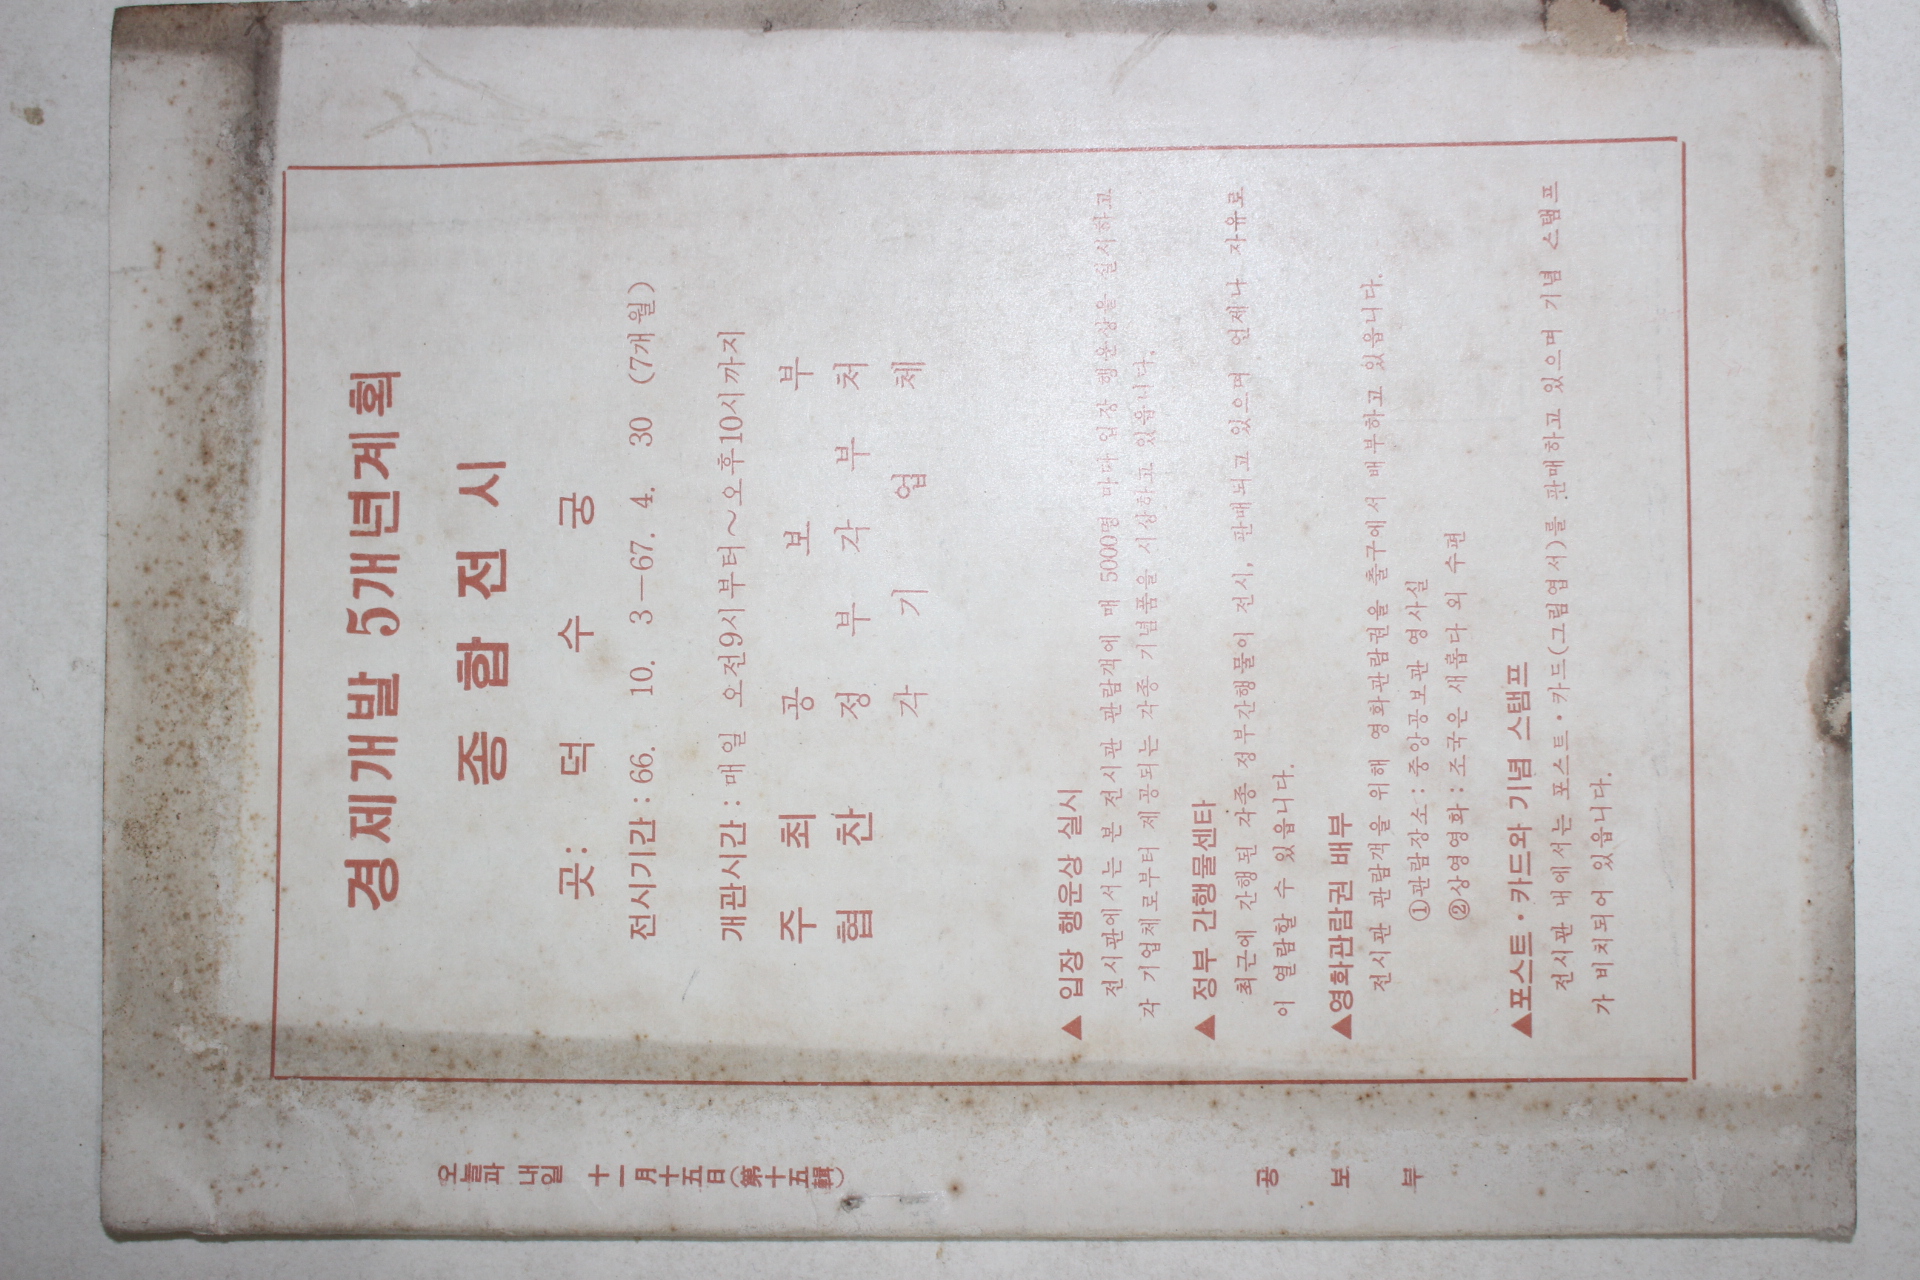 경제개발 5개년계획
종합전시
곳: 덕수궁
전시기간 : 66. 10. 3—67. 4. 30 (7개월)
개관시간 : 매일 오전9시부터~오후10시까지
주최 공보부
협찬 정부각부처
각기업체
▲ 입장 행운상 실시
전시관에서는 본 전시관 관람객에 매 5000명 마다 입장 행운상을 실시하고
각 기업체로부터 제공되는 각종 기념품을 시상하고 있읍니다.
▲ 정부 간행물센타
최근에 간행된 각종 정부간행물이 전시, 판매되고 있으며 언제나 자유로
이 열람할 수 있읍니다.
▲영화관람권 배부
전시관 관람객을 위해 영화관람권을 출구에서 배부하고 있읍니다.
①관람장소 : 중앙공보관 영사실
②상영영화 : 조국은 새롭다 외 수편
▲포스트・카드와 기념 스탬프
전시관 내에서는 포스트・카드(그림엽서)를 판매하고 있으며 기념 스탬프
가 비치되어 있읍니다.
오늘과 내일 十一月十五日(第十五輯) 공보부